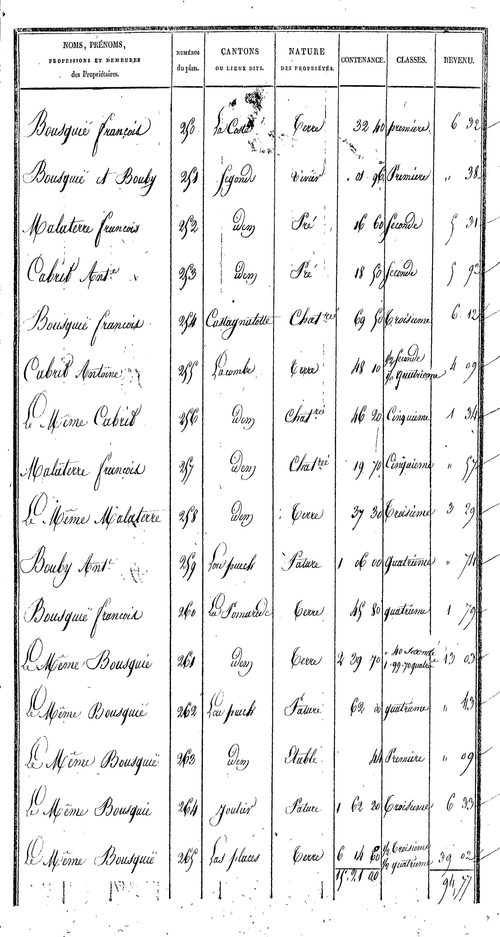 NOMS, PRÉNOMS, PROFESSIONS ET DEMEURES des Propriétaires. NUMÉROS du plan. CANTONS OU LIEUX DITS. NATURE DES PROPRIÉTÉS. CONTENANCE. CLASSES. REVENU.
Bousquié françois 250 La Coste Terre 32 40 première 6 32
Bousquié et Bouby 251 01 96 Première " 38
Malaterre francois 252 idem Pré 16 60 Seconde 5 31
Cabrit Ant.e 253 idem Pré 18 50 Seconde 5 92
Bousquié francois 254 Castagnalotte Chat.ré 69 50 Troisieme 6 12
Cabrit Antoine 255 Lacombe Terre 48 10 ½ Seconde ½ quatrieme 4 09
Le Même Cabrit 256 idem Chat.ré 46 20 Cinquieme 1 34
Malaterre françois 257 idem Chat.ré 19 70 Cinquieme " 57
Le Même Malaterre 258 idem Terre 37 30 Troisieme 3 29
Bouby Ant.e 259 Lou puech Pature 1 06 00 quatrieme " 74
Bousquié francois 260 La Pomarede Terre 45 80 quatrieme 1 79
Le Même Bousquié 261 idem Terre 2 39 70 40 seconde 1-99-70 quatre 13 03
Le Même Bousquié 262 Lou puech Pature 62 00 quatrieme " 43
Le Même Bousquié 263 idem Etable 44 Premiere " 09
Le Même Bousquié 264 Pature 1 62 20 Troisieme 6 33
Le Même Bousquié 265 Las places Terre 6 14 60 ½ Troisieme ½ quatrieme 39 02
15 21 00 94,77